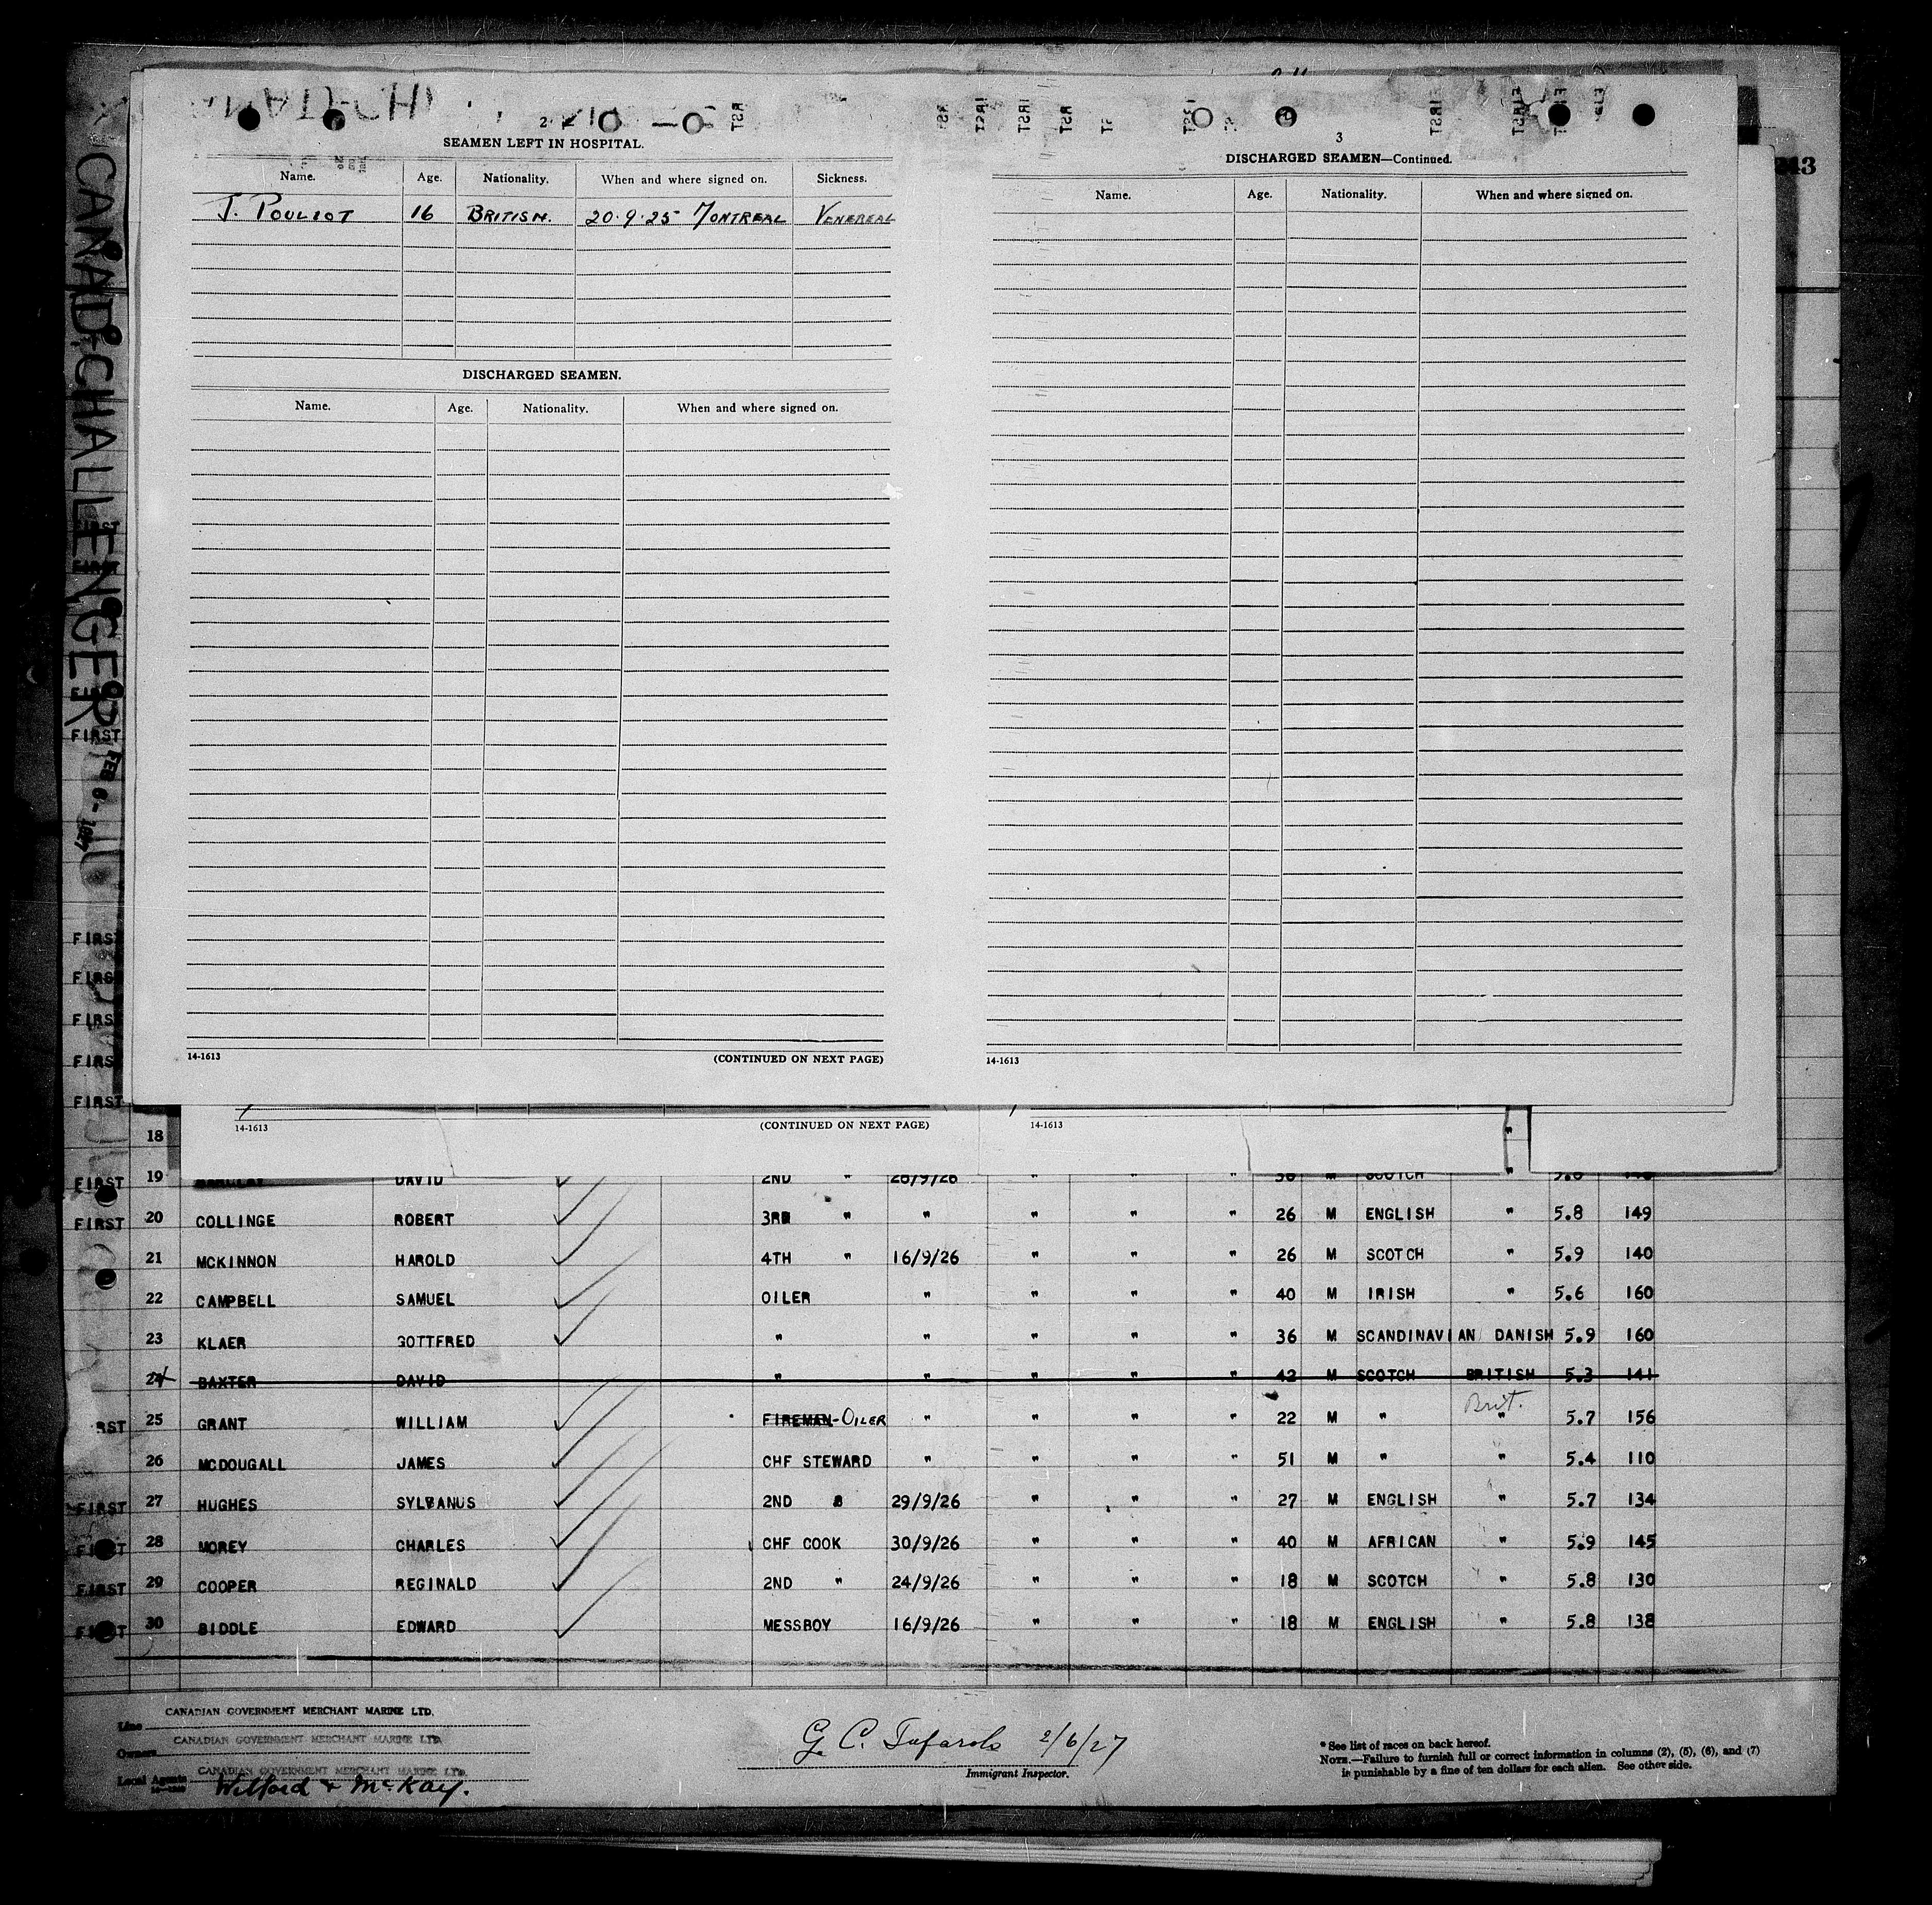 2
SEAMEN LEFT IN HOSPITAL.
Name. Age. Nationality. When and where signed on. Sickness.
J. POULIOT 16 BRITISH. 20·9·25 MONTREAL VENEREAL
DISCHARGED SEAMEN.
Name. Age. Nationality. When and where signed on.
14-1613 (CONTINUED ON NEXT PAGE)
3
DISCHARGED SEAMEN—Continued.
Name. Age. Nationality. When and where signed on.
14-1613
243
CANAD. CHALLENGER
FEB 6- 1927
FIRST
FIRST
FIRST
FIRST
FIRST
FIRST
FIRST
FIRST
14-1613 (CONTINUED ON NEXT PAGE) 14-1613
18 "
FIRST 19 DAVID 2ND " 28/9/26 " " " 38 M SCOTCH "
FIRST 20 COLLINGE ROBERT 3RD " " " " " 26 M ENGLISH " 5.8 149
21 MCKINNON HAROLD 4TH " 16/9/26 " " " 26 M SCOTCH " 5.9 140
22 CAMPBELL SAMUEL OILER " " " " 40 M IRISH " 5.6 160
23 KLAER GOTTFRED " " " " " 36 M SCANDINAVIAN DANISH 5.9 160
24 BAXTER DAVID " " " " " 42 M SCOTCH BRITISH 5.3 141
RST 25 GRANT WILLIAM FIREMAN-OILER " " " " 22 M " Brit. " 5.7 156
26 MCDOUGALL JAMES CHF STEWARD " " " " 51 M " " 5.4 110
FIRST 27 HUGHES SYLBANUS 2ND 29/9/26 " " " 27 M ENGLISH " 5.7 134
FIRST 28 MOREY CHARLES CHF COOK 30/9/26 " " " 40 M AFRICAN " 5.9 145
FIRST 29 COOPER REGINALD 2ND " 24/9/26 " " " 18 M SCOTCH " 5.8 130
FIRST 30 BIDDLE EDWARD MESSBOY 16/9/26 " " " 18 M ENGLISH " 5.8 138
Line CANADIAN GOVERNMENT MERCHANT MARINE LTD.
Owners CANADIAN GOVERNMENT MERCHANT MARINE LTD.
Local Agents CANADIAN GOVERNMENT MERCHANT MARINE LTD.
Wilford & McKay.
G. C. 2/6/27
Immigrant Inspector.
* See list of races on back hereof.
NOTE.—Failure to furnish full or correct information in columns (2), (5), (6), and (7)
is punishable by a fine of ten dollars for each alien. See other side.